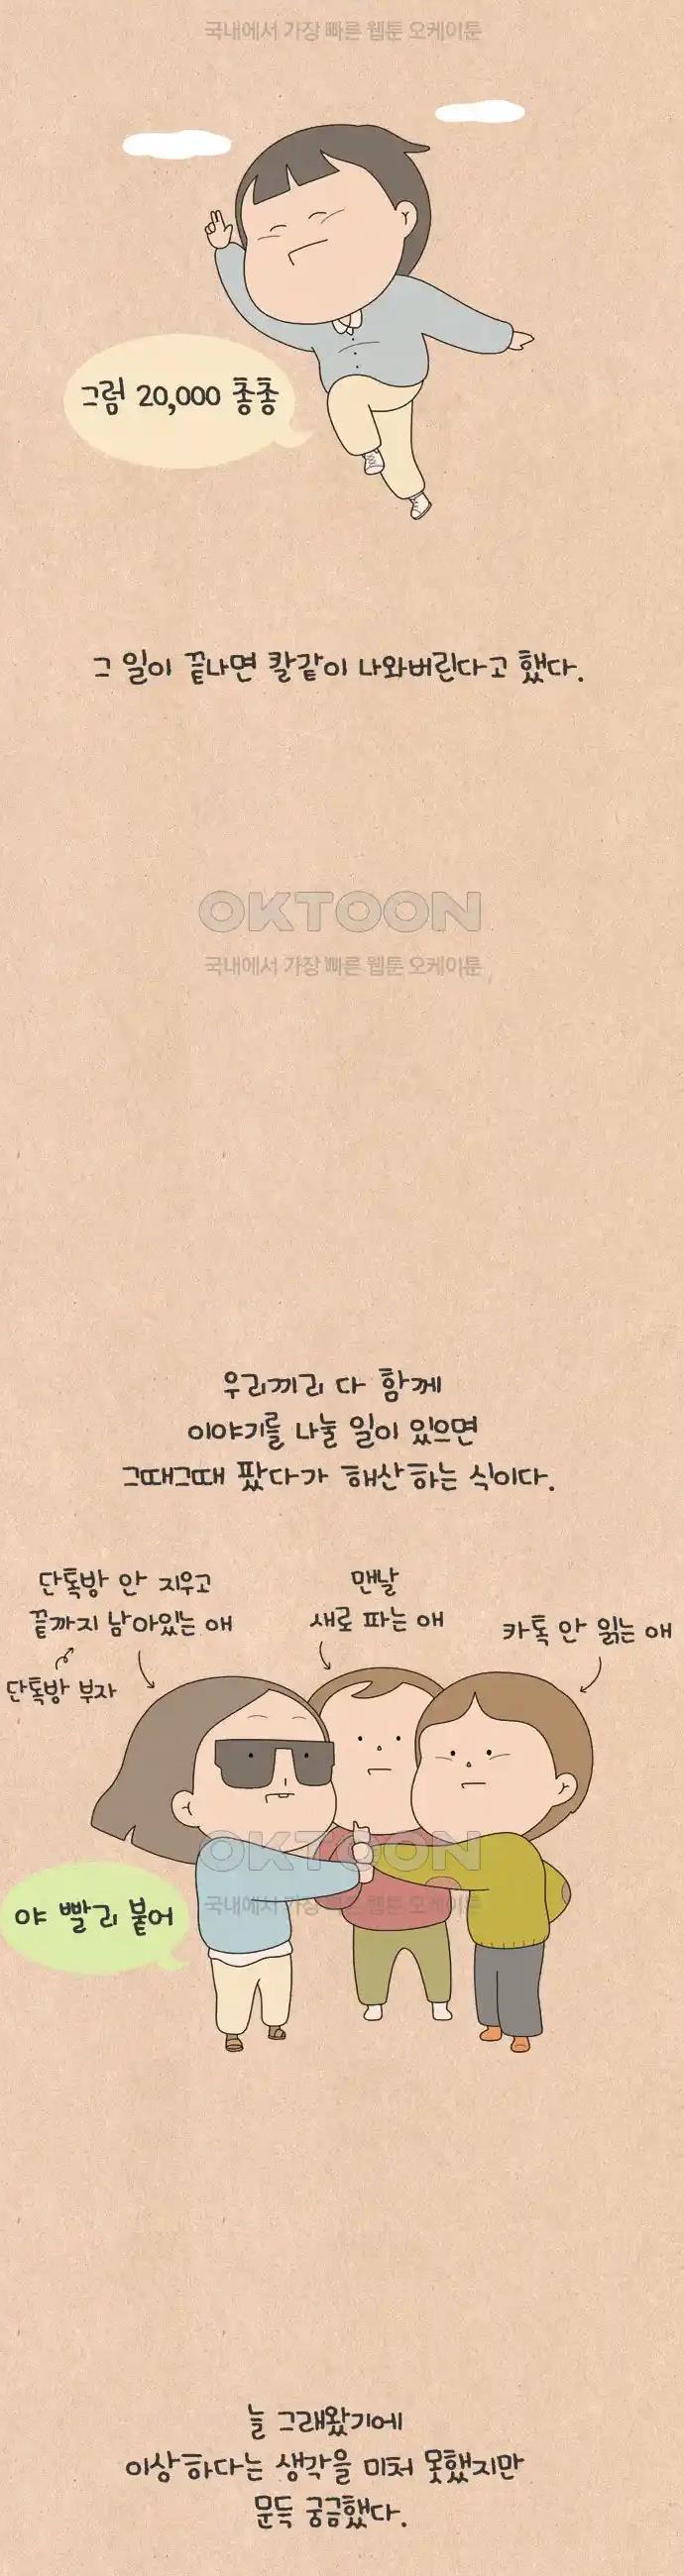 국내에서 가장 빠른 웹툰 오케이툰
그럼 20,000 총총
그 일이 끝나면 칼같이 나와버린다고 했다.
OKTOON
국내에서 가장 빠른 웹툰 오케이툰
우리끼리 다 함께
이야기를 나눌 일이 있으면
그때그때 팠다가 해산하는 식이다.
단톡방 안 지우고
끝까지 남아있는 애
단톡방 부자
맨날
새로 파는 애
카톡 안 읽는 애
OKTOON
국내에서 가장 빠른 웹툰 오케이툰
야 빨리 붙어
늘 그래왔기에
이상하다는 생각을 미처 못했지만
문득 궁금했다.